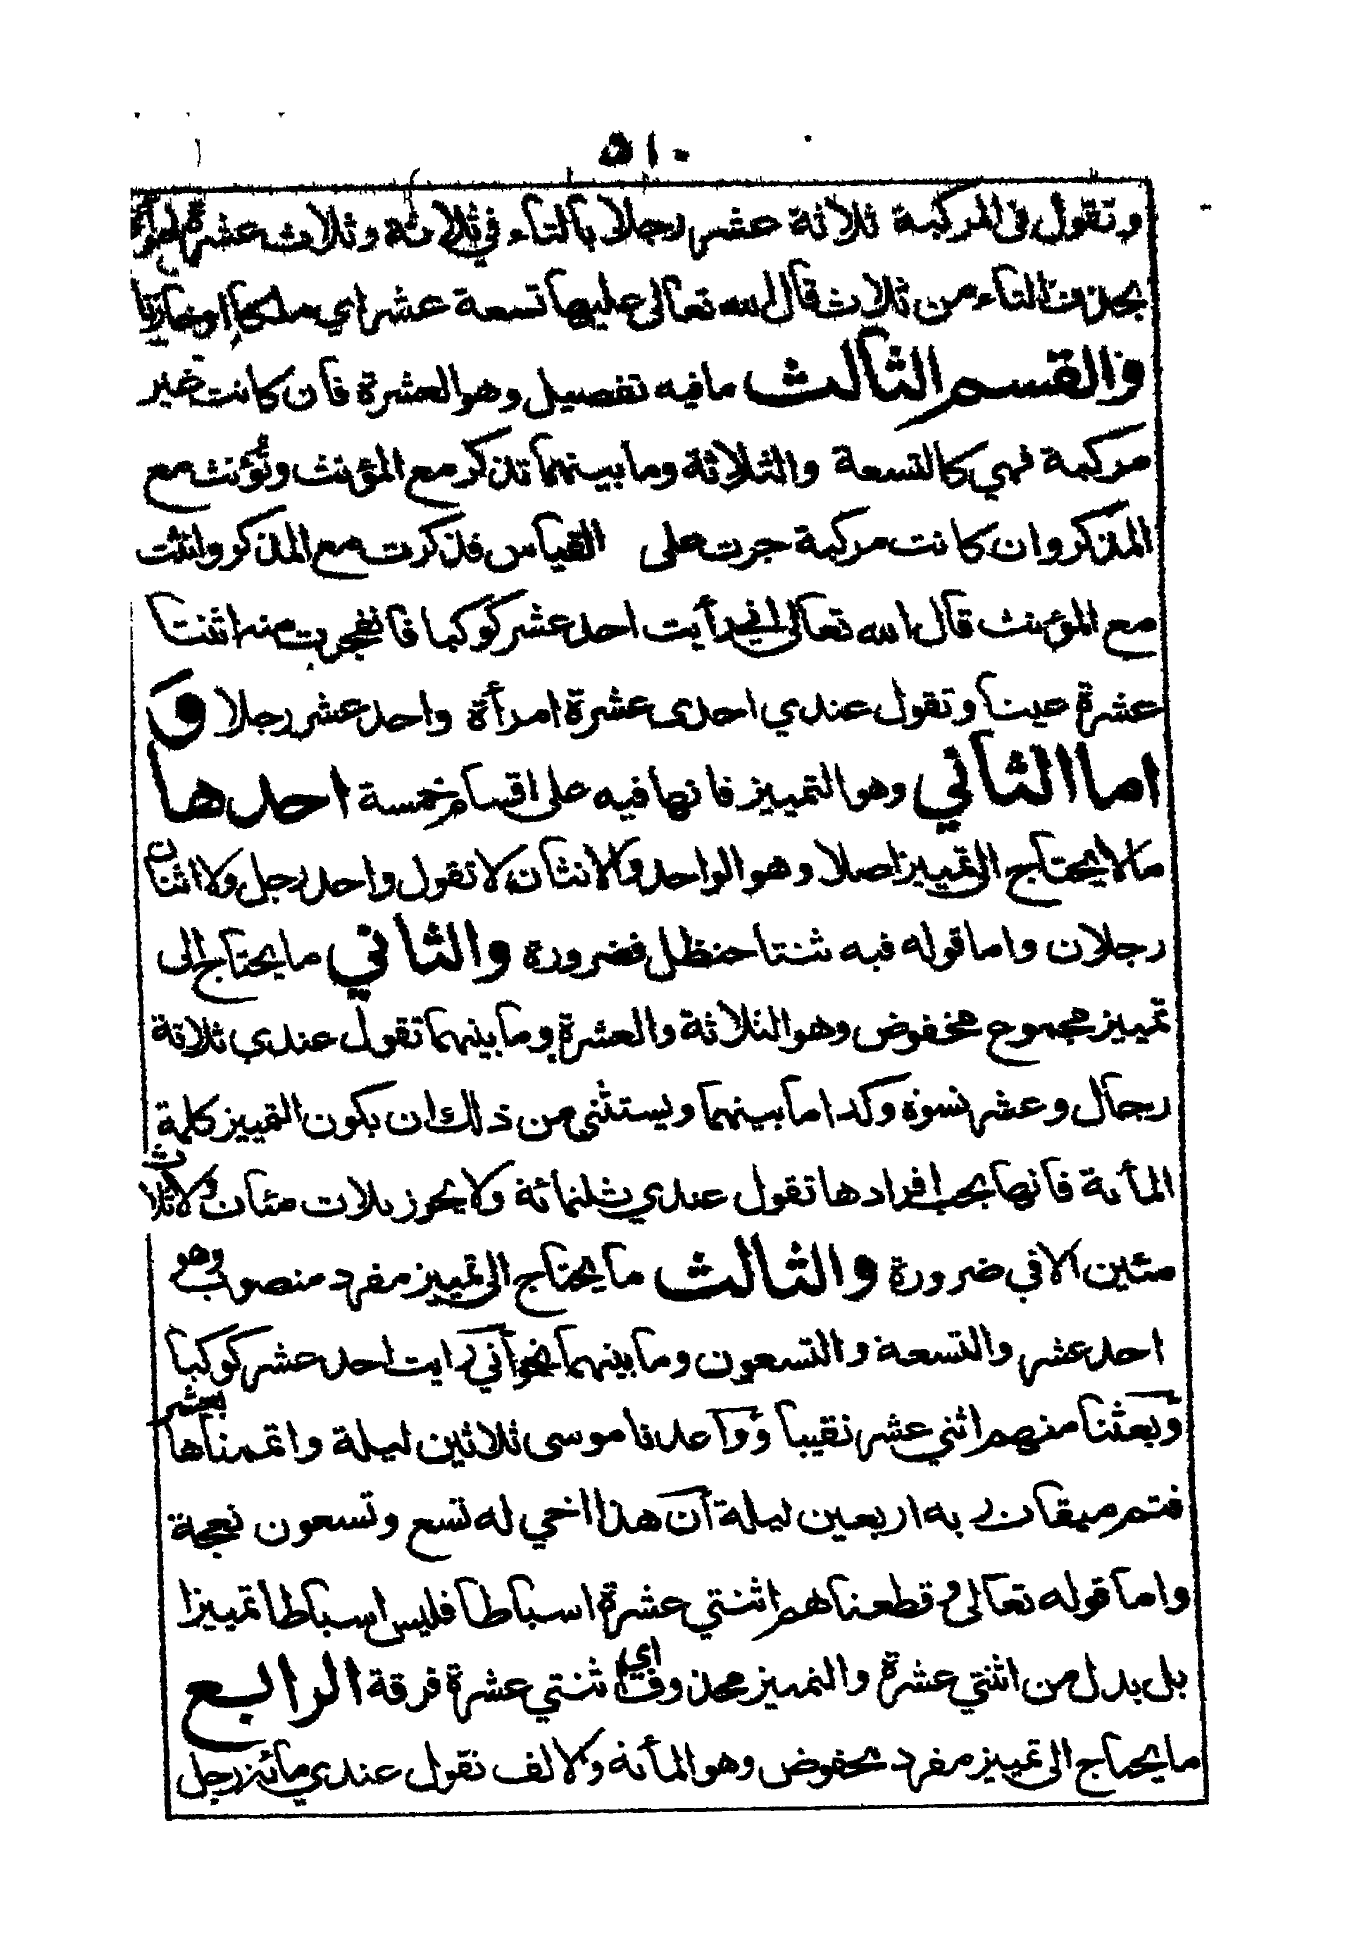 ٥١٠
وتقول فى المركبة ثلاثة عشر رجلا بالتاء في ثلاثة وثلاث عشرة امرأة
بحذف التاء من ثلاث قال الله تعالى عليها تسعة عشر اي ملكا او خازنا
والقسم الثالث ما فيه تفصيل وهو العشرة فان كانت غير
مركبة فهي كالتسعة والثلاثة وما بينهما تذكر مع المؤنث وتؤنث مع
المذكر وان كانت مركبة جرت على القياس فذكرت مع المذكر وانثت
مع المؤنث قال الله تعالى اني رأيت احد عشر كوكبا فانفجرت منه اثنتا
عشرة عينا وتقول عندي احدى عشرة امرأة واحد عشر رجلا و
اما الثاني وهو التمييز فانها فيه على اقسام خمسة احدها
ما لا يحتاج الى تمييز اصلا وهو الواحد والاثنان لا تقول واحد رجل ولا اثنان
رجلان واما قوله فيه ثنتا حنظل فضرورة والثاني ما يحتاج الى
تمييز مجموع مخفوض وهو الثلاثة والعشرة وما بينهما تقول عندي ثلاثة
رجال وعشر نسوة وكذا ما بينهما ويستثنى من ذلك ان يكون التمييز كلمة
المأية فانها يجب افرادها تقول عندي ثلثمائة ولا يجوز ثلاث مئات ولا ثلاث
مئين الا في ضرورة والثالث ما يحتاج الى تمييز مفرد منصوب وهو
احد عشر والتسعة والتسعون وما بينهما نحو اني رايت احد عشر كوكبا
وبعثنا منهم اثني عشر نقيبا و وواعدنا موسى ثلاثين ليلة واتممناها بعشر
فتم ميقات ربه اربعين ليلة ان هذا اخي له تسع وتسعون نعجة
واما قوله تعالى وقطعناهم اثنتي عشرة اسباطا فليس اسباطا تمييزا
بل بدل من اثنتي عشرة والتمييز محذوف اي اثنتي عشرة فرقة الرابع
ما يحتاج الى تمييز مفرد مخفوض وهو المأية والالف تقول عندي مائة رجل